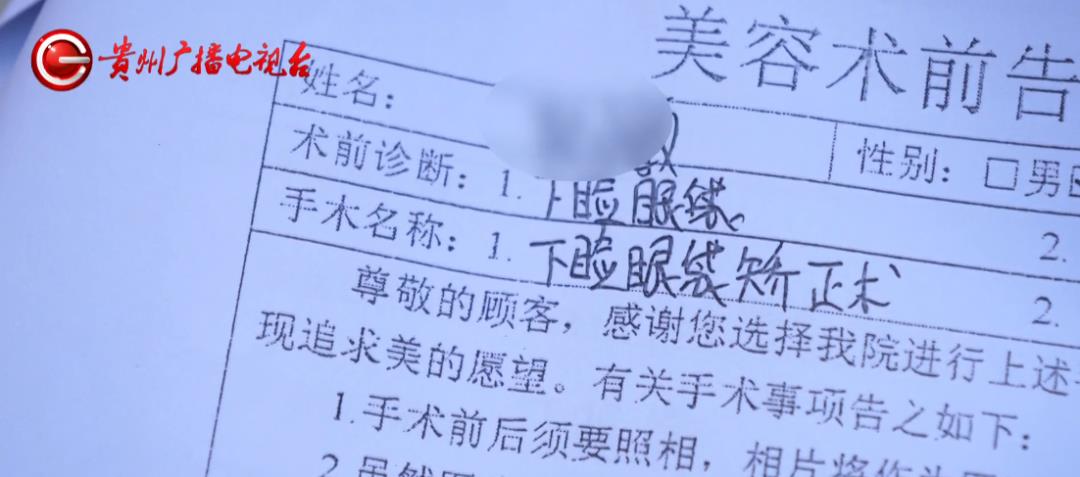 贵州广播电视台
美容术前告
姓名:
性别: □男
术前诊断: 1. 下睑眼袋 2.
手术名称: 1. 下睑眼袋矫正术 2.
尊敬的顾客，感谢您选择我院进行上述
现追求美的愿望。有关手术事项告之如下:
1.手术前后须要照相，相片将作为
2.虽然